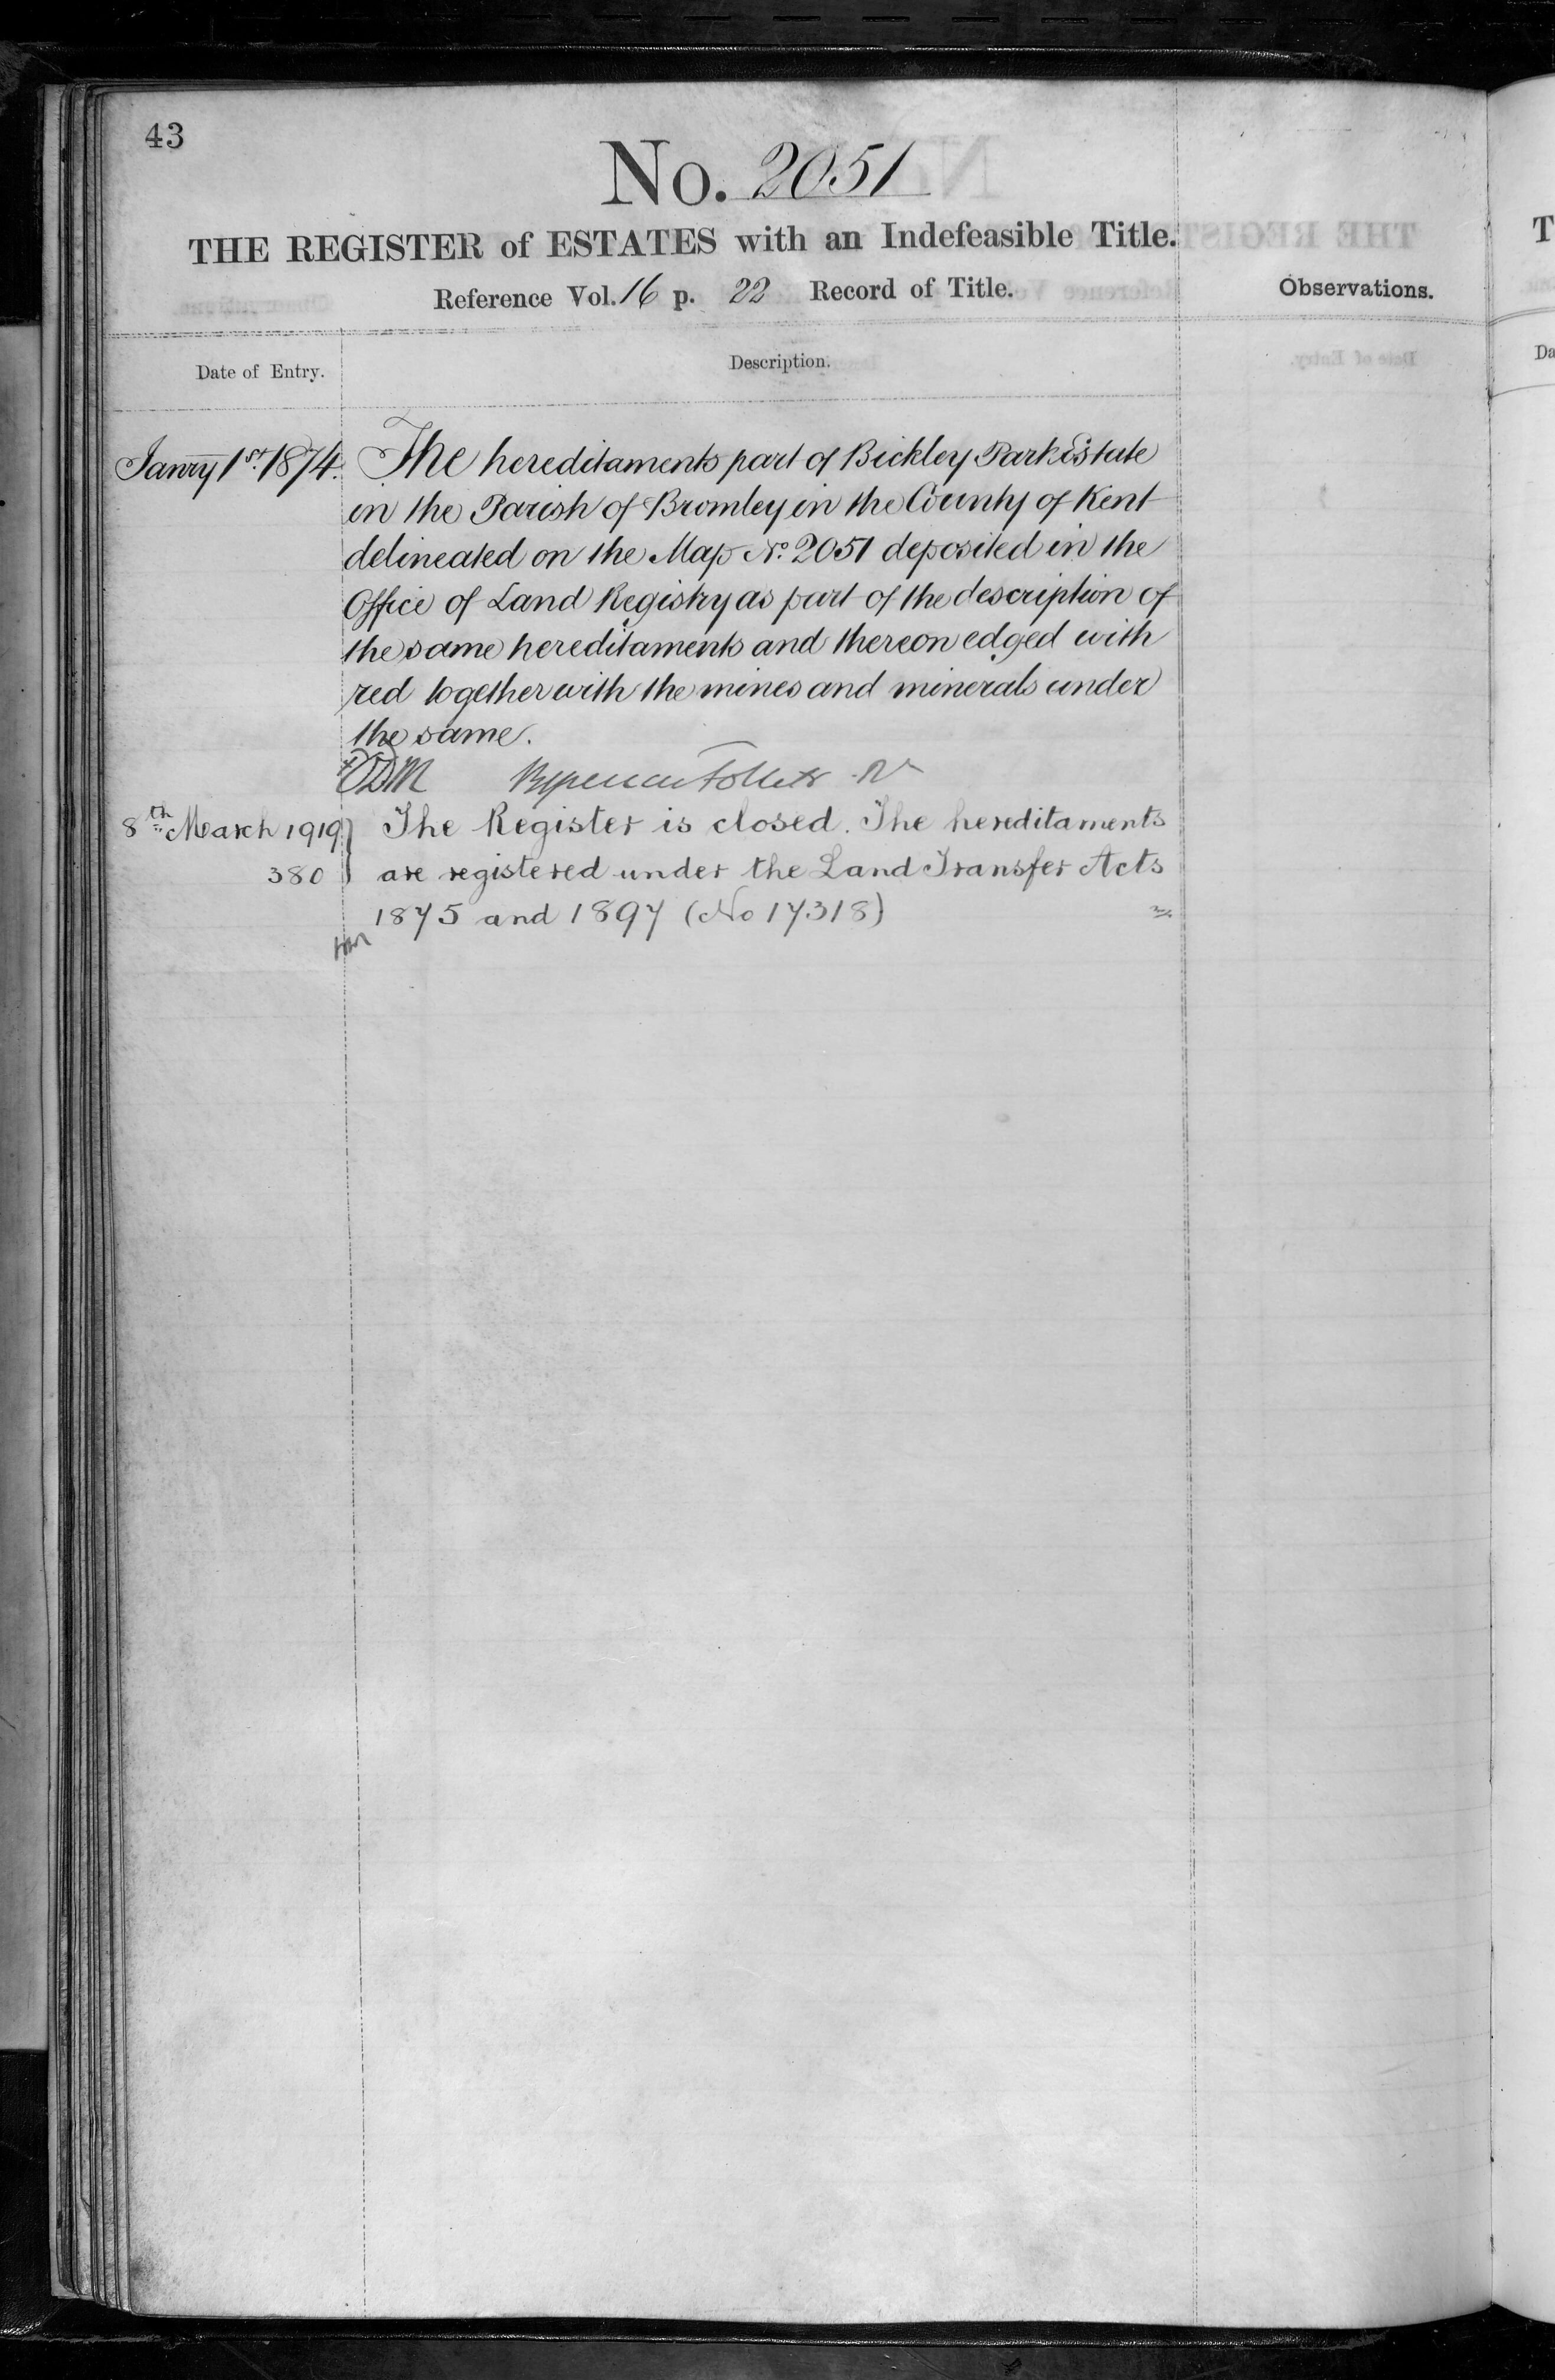 43
No. 2051
THE REGISTER of ESTATES with an Indefeasible Title.
Reference Vol. 16 p. 22 Record of Title.
Observations.
Date of Entry.
Description.
Janry 1st. 1874. The hereditaments part of Bickley Park Estate
in the Parish of Bromley in the County of Kent
delineated on the Map No. 2051 deposited in the
Office of Land Registry as part of the description of
the same hereditaments and thereon edged with
red together with the mines and minerals under
the same.
Follett
8th March 1919 The Register is closed. The hereditaments
380 are registered under the Land Transfer Acts
1875 and 1897 (No 17318)
T
Da